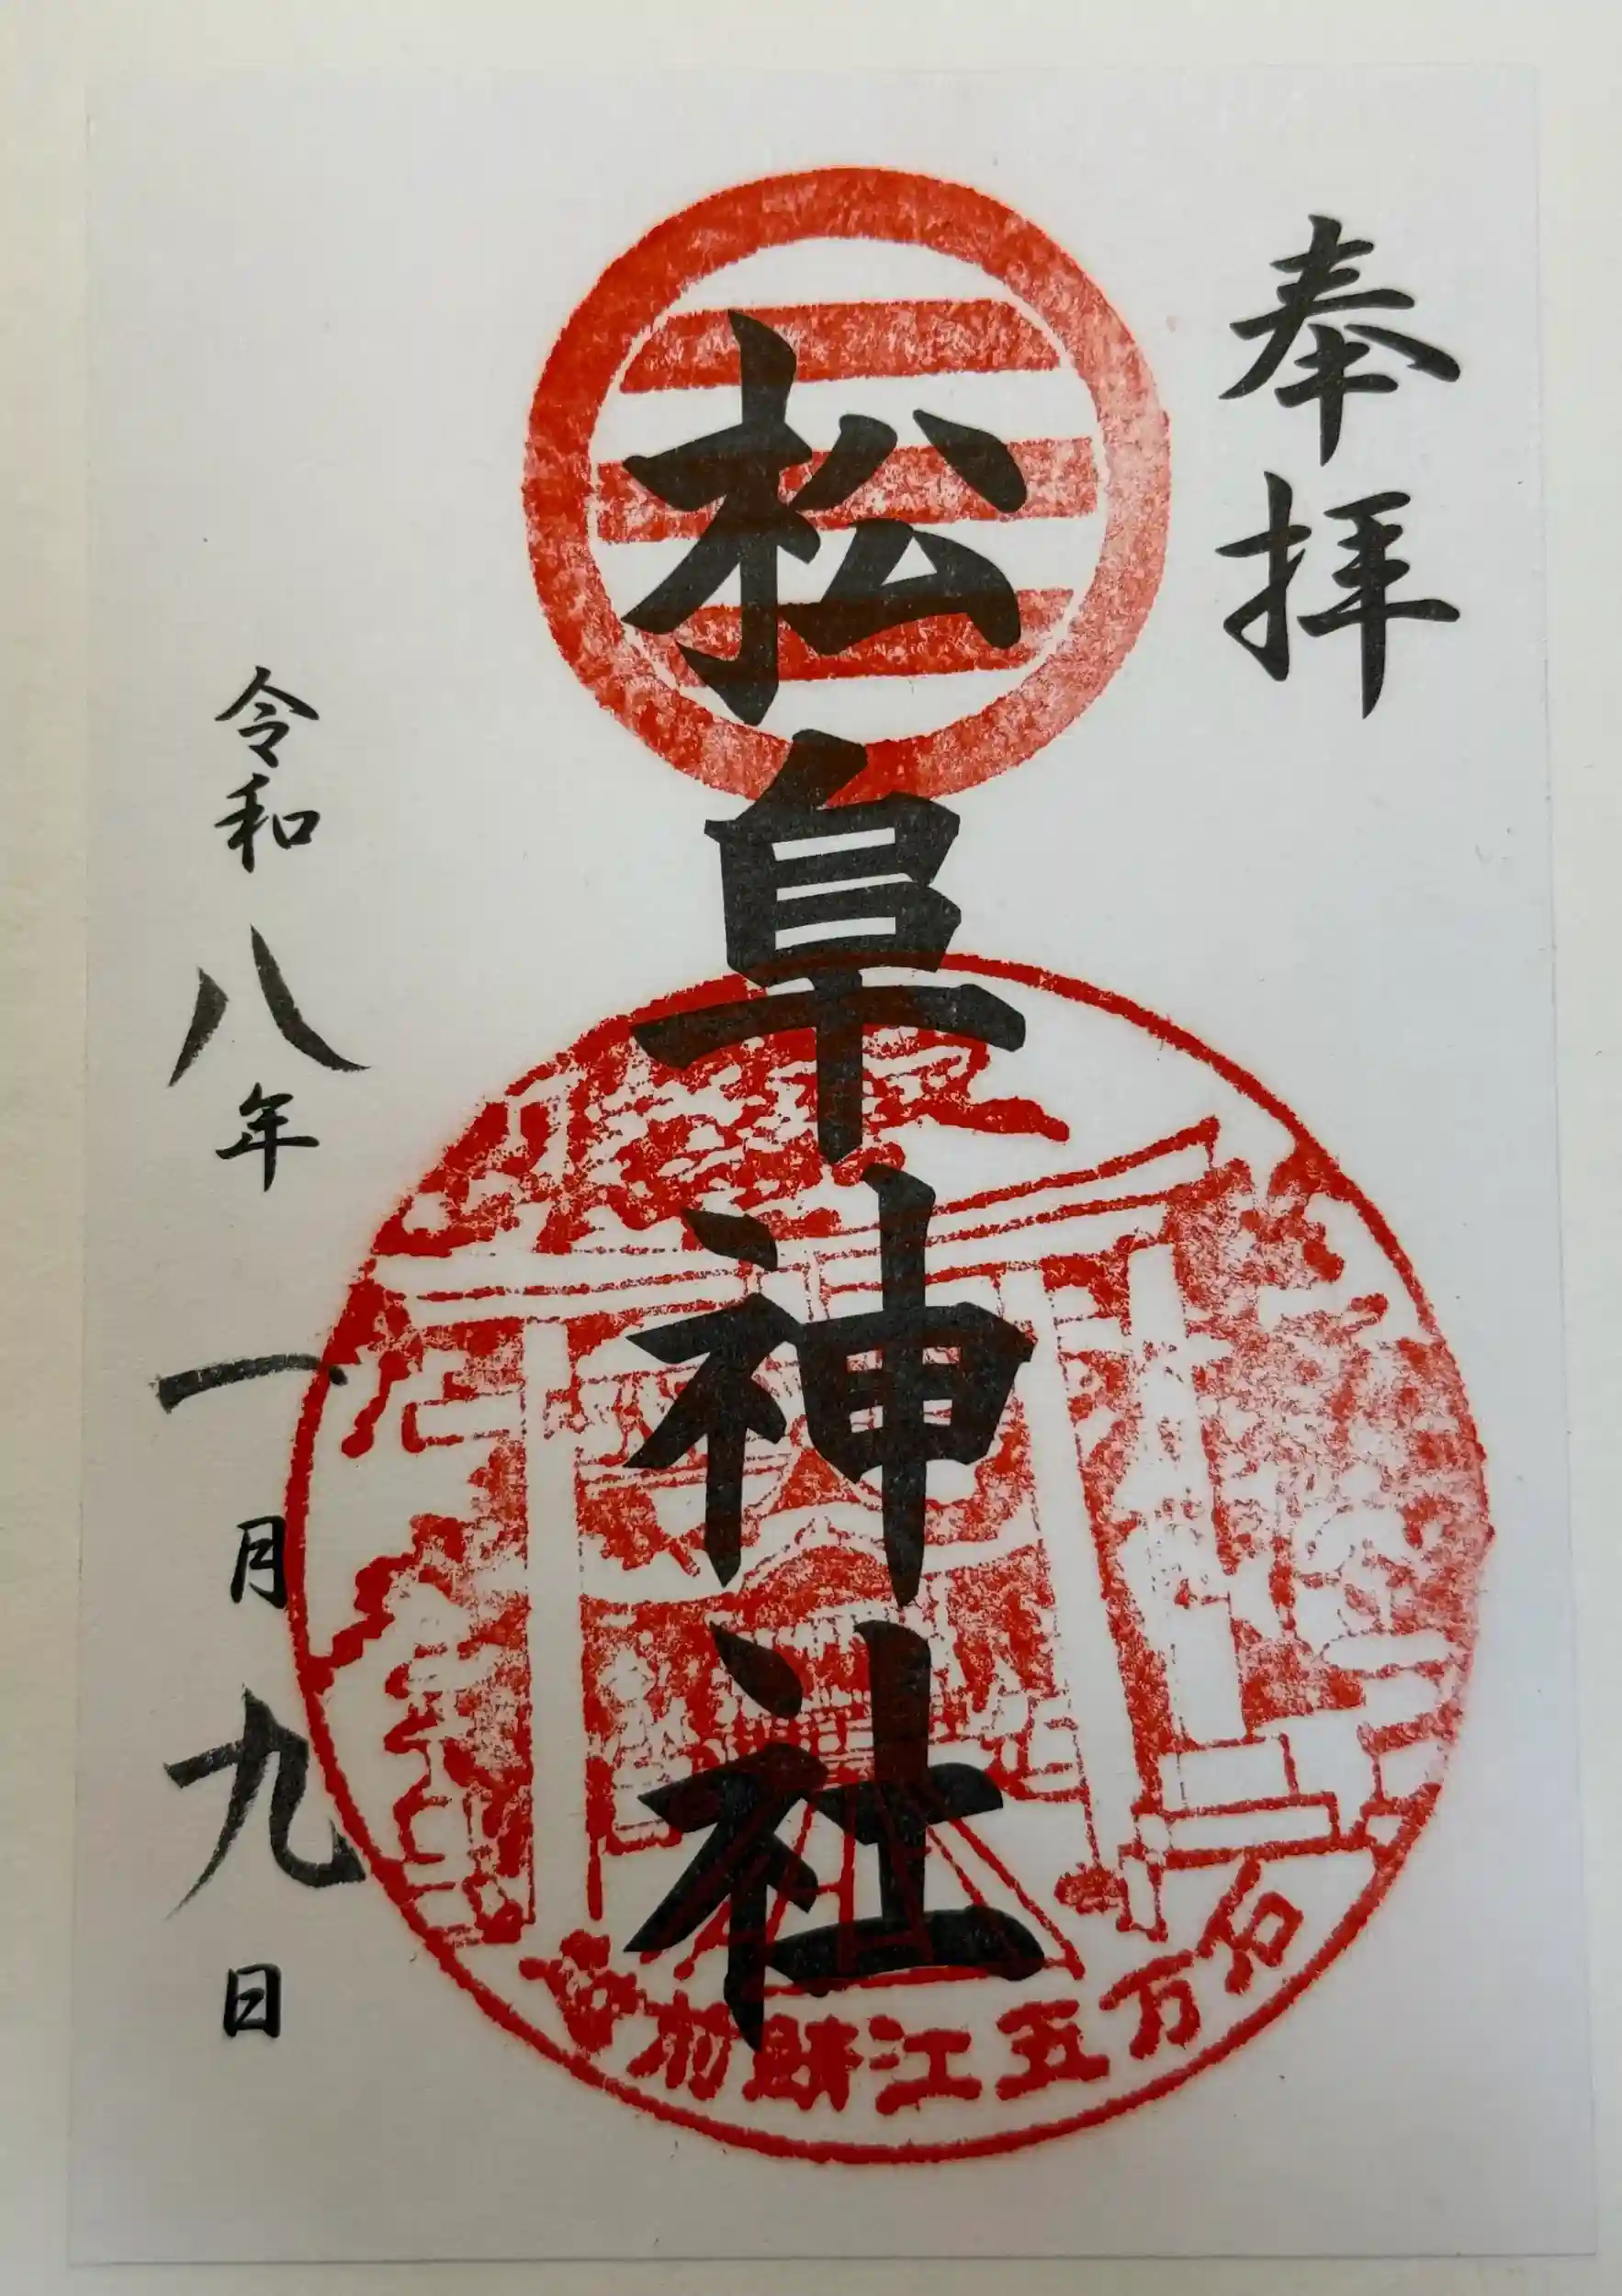 奉拝
松阜神社
令和八年一月九日
前鯖江五万石